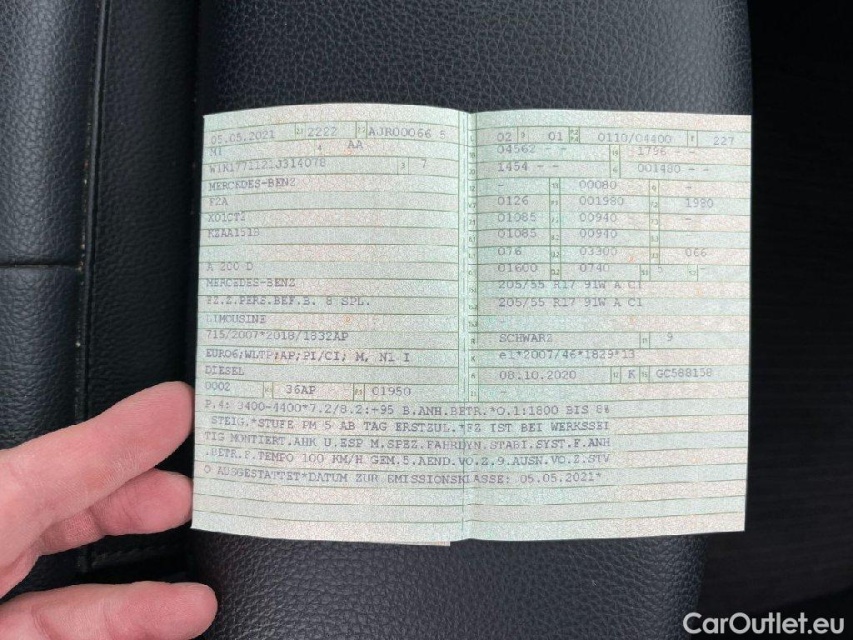 05.05.2021 2222 AJR00066 5
M1 AA
W1K1771121J314078 7
MERCEDES-BENZ
F2A
KZAA1519
A 200 D
MERCEDES-BENZ
FZ.Z.PERS.BEF.B. 8 SPL.
LIMOUSINE
715/2007*2018/1832AP
EURO6;WLTP;AP;PI/CI; M, N1 I
DIESEL
0002 36AP 01950
02 01 0110/04400 227
04562 - - 1796 - -
1454 - - 001480 - -
- 00080 -
0126 001980 1980
01085 00940 -
01085 00940 -
076 03300 066
01600 0740 5 -
205/55 R17 91W A C1
205/55 R17 91W A C1
SCHWARZ 9
e1*2007/46*1829*13
08.10.2020 K GC588158
P.4: 3400-4400*7.2/8.2:+95 B.ANH.BETR.*O.1:1800 BIS 8%
STEIG.*STUFE PM 5 AB TAG ERSTZUL.*FZ IST BEI WERKSSEI
TIG MONTIERT.AHK U.ESP M.SPEZ.FAHRDYN.STABI.SYST.F.ANH
.BETR.F.TEMPO 100 KM/H GEM.5.AEND.VO.Z.9.AUSN.VO.Z.STV
O AUSGESTATTET*DATUM ZUR EMISSIONSKLASSE: 05.05.2021*
CarOutlet.eu